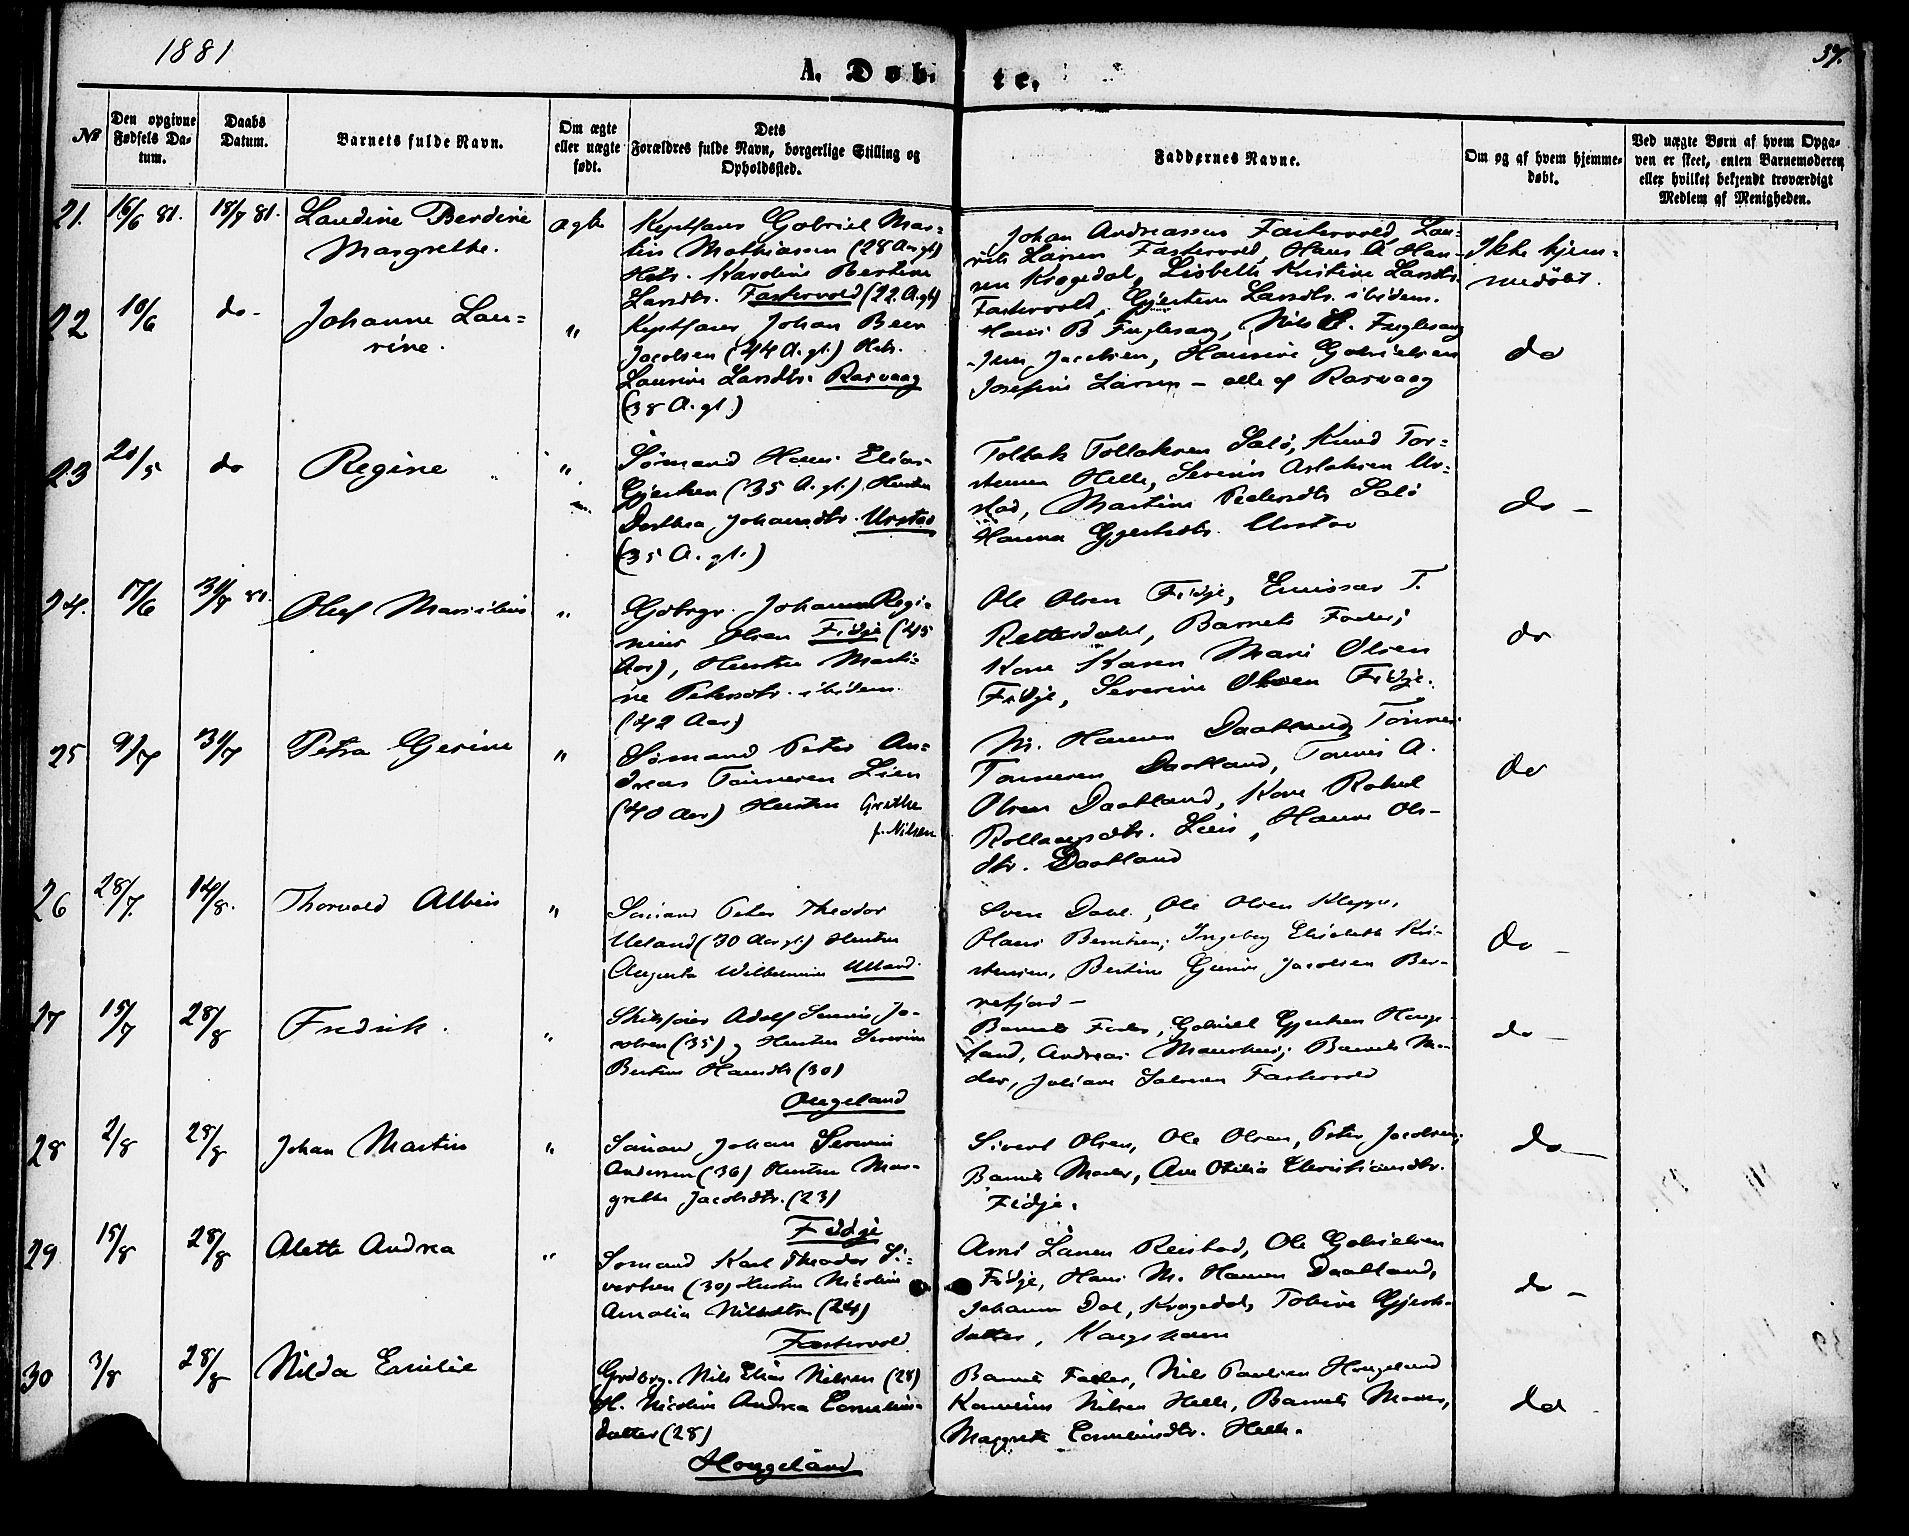 1881
37.
A. Døbte.
No
Den opgivne Fødsels Datum.
Daabs Datum.
Barnets fulde Navn.
Om ægte eller uægte født.
Dets Forældres fulde Navn, borgerlige Stilling og Opholdssted.
Faddernes Navne.
Om og af hvem hjemmedøbt.
Ved uægte Børn af hvem Opgaven er skeet, enten Barnemoderen eller hvilket bekjendt troværdigt Medlem af Menigheden.
21. 15/6 81. 18/7 81.
Laudine Berdine
Margrethe.
ægte
Gabriel Mar-
tin Mathiassen (28 A. gl)
Hst. Karoline Bertine
Larsdtr. Fasteevold (22 A. gl)
Johan Andreassen Fastevold, Lau-
rits Larsen Fastevold, Hans A. Han-
sen Kragedal, Lisbeth Kristine Larsdtr.
Fastevold, Larsdtr. ibidem.
Ikke hjem-
medøbt.
22 10/6 do-
Johanne Lau-
rine.
"
Johan Beer
Jacobsen (44 A. gl.) Hst.
Laurine Larsdtr. Rasvaag
(38 A. gl)
Hans B Fuglesang, Nils Fuglesang
Jens Jacobsen, Hansine Gabrielsen
Josefine Larsen - alle af Rasvaag
do
23 20/5 do
Regine
"
Sømand Hans Elias
Gjertsen (35 A. gl.) Hustru
Dorthea Johansdtr. Urstad
(35 A. gl.)
Tollak Tollaksen Salø, Knud Tor-
stensen Helle, Severin Aslaksen Ur-
stad, Martine Pedersdtr Salø
Hanna Gjertsdtr. Urstad
do -
24. 17/6 31/7 81.
Oluf Marsilius
"
Gdbrgr. Johannes Regi-
nius Olsen Fidje (45
Aar), Hustru Marti-
ne Petersdtr. ibidem.
(42 Aar)
Ole Olsen Fidje, Emissær T.
Retterdahl, Barnets Fader;
Kone Karen Marie Olsen
Fidje, Severine Olsen Fidje.
do
25 9/7 31/7
Petra Gesine
"
Sømand Peter An-
dreas Tønnesen Lien
(40 Aar) Hustru Grethe
f. Nilsen
M. Hansen Daatland, Tønnes
Tønnesen Daatland, Tønnes A.
Olsen Daatland, Kone Rakel
Rollaugsdtr. Lien, Hanne Ols-
dtr. Daatland
do
26 28/7. 14/8.
Thorvald Albin
"
Sømand Peter Theodor
Ueland (30 Aar gl.) Hustru
Augusta Wilhelmine Ueland.
Sven Dahl, Ole Olsen Kleppe,
Olaus Berntsen; Ingeborg Elisabeth Kri-
stensen, Bertine Jacobsen Ber-
refjord -
do -
27 15/7 28/8
Fredrik.
"
Adolf Severin Ja-
cobsen (35) og Hustru Severine
Bertine Hansdtr (30)
Øugeland
Barnets Fader, Gabriel Gjertsen Houge-
land, Andreas Barnets Mo-
der, Juliane Salvesen Fastevold
do -
28 2/8 28/8
Johan Martin
"
Sømand Johan Severin
Andersen (36) Hustru Mar-
grethe Jacobsdtr. (23)
Fidje
Sivert Olsen, Ole Olsen, Peter Jacobsen;
Barnets Moder, Ane Otilia Christiansdtr.
Fidje.
do
29 15/8 28/8
Alette Andrea
"
Sømand Karl Theodor Si-
vertsen (30) Hustru Nicoline
Amalia Nilsdtr (24)
Fastevold
Arnt Larsen Reistad, Ole Gabrielsen
Fidje, Hans M. Hansen Daatland,
Johanne Dal, Kragedal, Tobine Gjerts-
datter, Kongshavn
do -
30 3/8 28/8
Hilda Emilie
Grdbrg. Nils Elias Nilsen (28)
H. Nicoline Andrea Cornelius-
datter (28)
Hougeland
Barnets Fader, Nils Paulsen Hougeland
Kornelius Nilsen Helle, Barnets Moder,
Magrete Corneliusdtr. Helle.
do